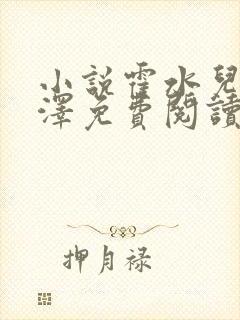 小説霍水兒
澤免費閱讀
押月禄